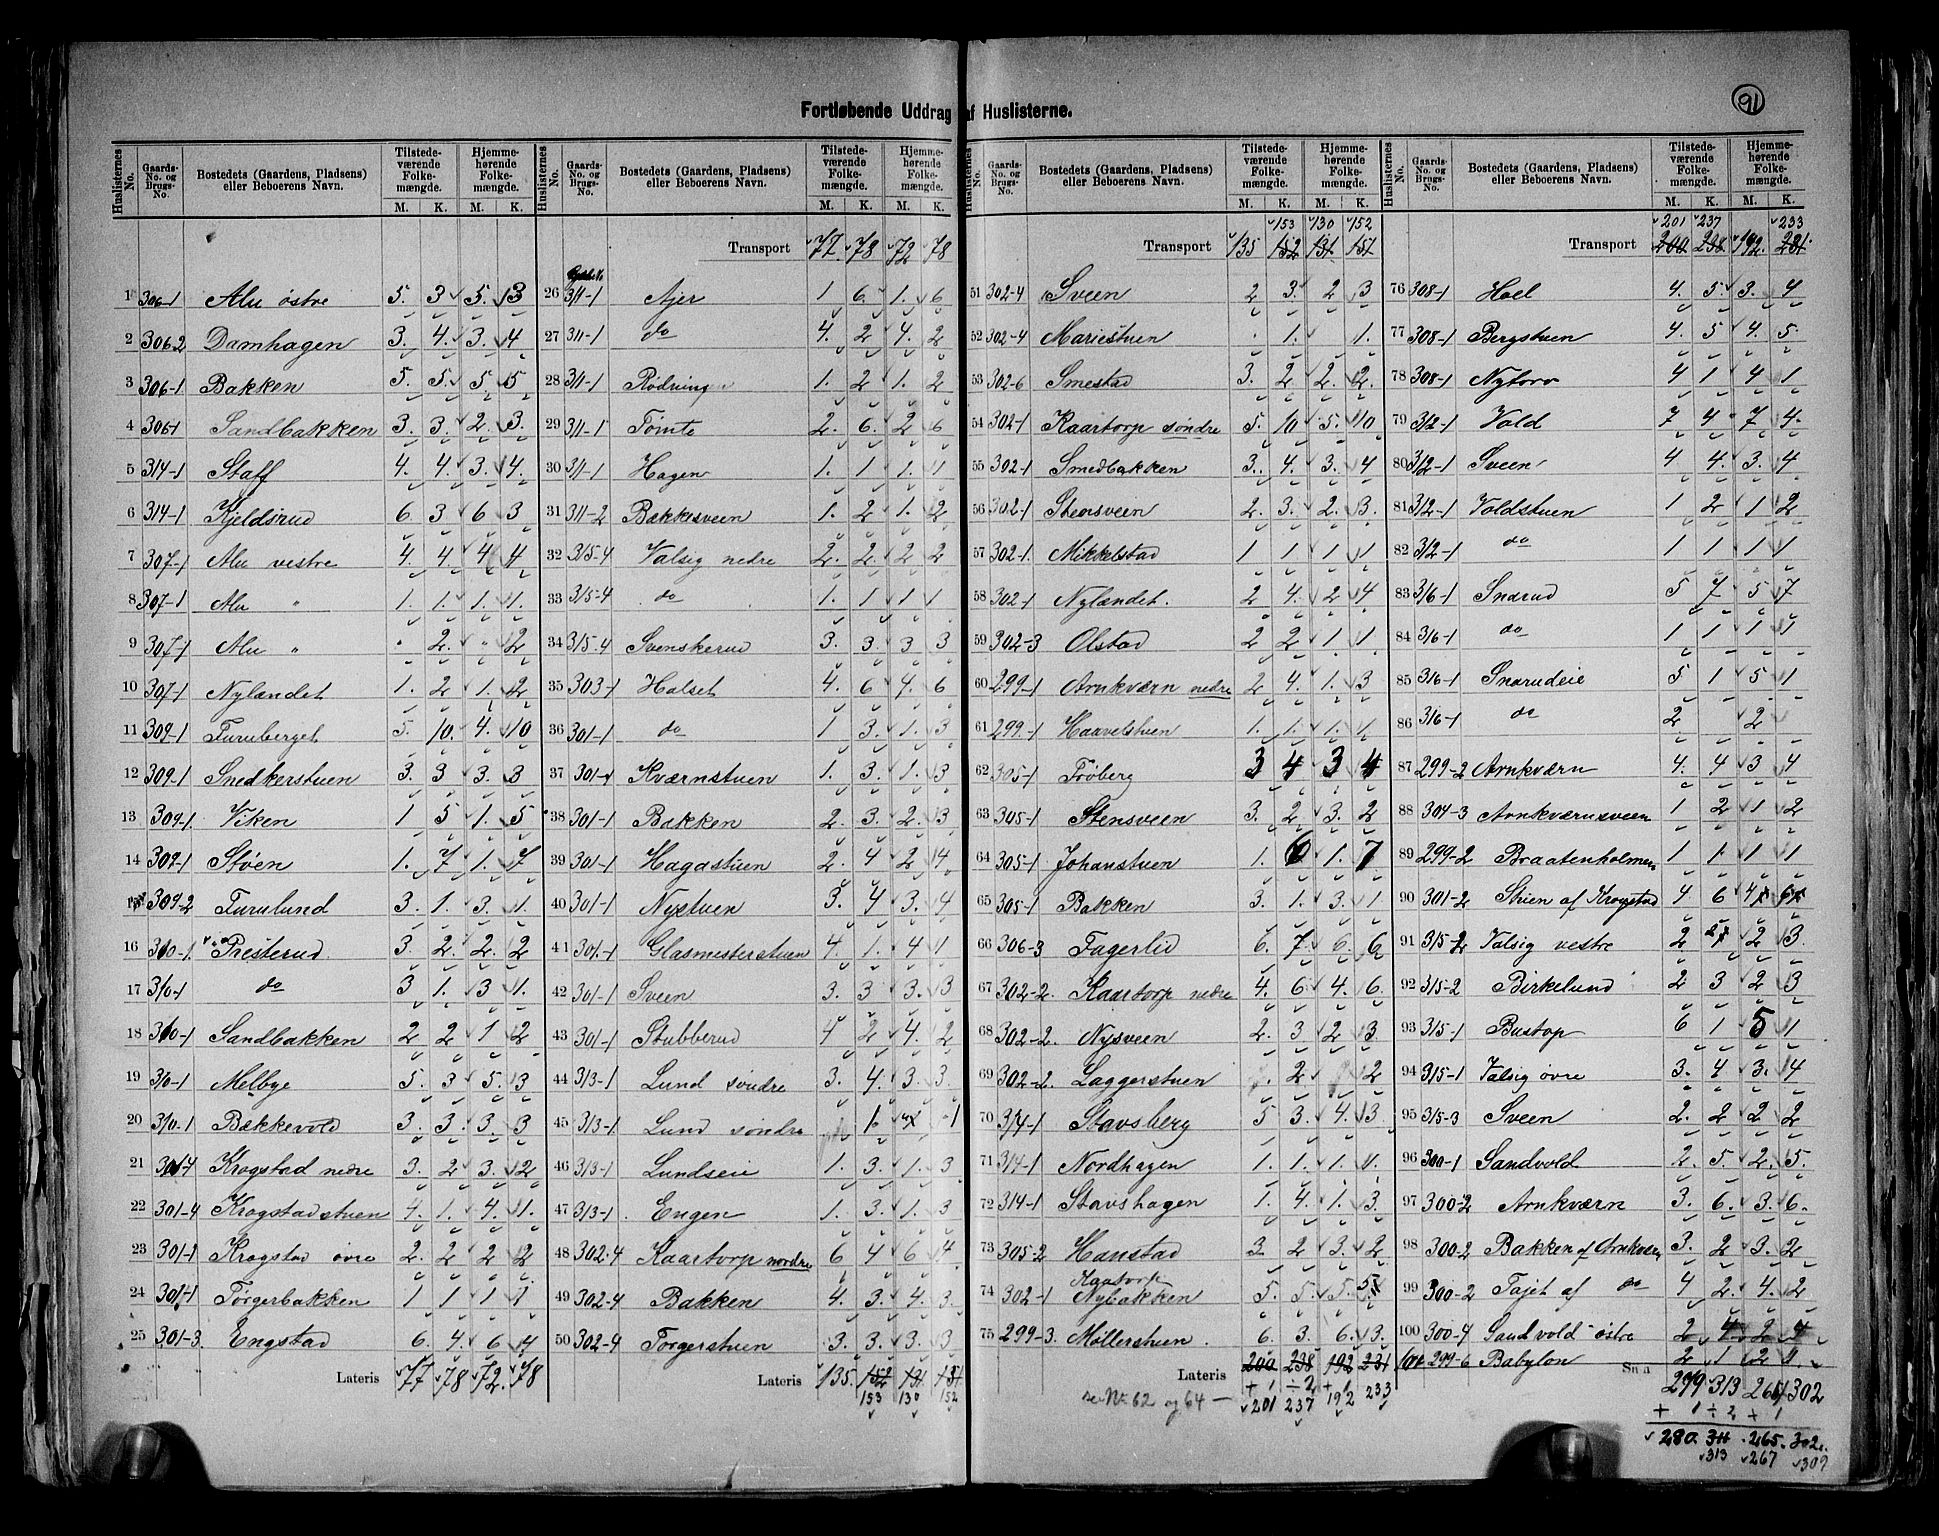 91
Fortløbende Uddrag af Huslisterne.
Huslisternes No. Gaards-No. og Brugs-No. Bostedets (Gaardens, Pladsens) eller Beboerens Navn. Tilstede-værende Folke-mængde. M. K. Hjemme-hørende Folke-mængde. M. K.
1 306-1 Alu østre 5. 3 5. 3
2 306-2 Damhagen 3. 4. 3. 4
3 306-1 Bakken 5. 5. 5. 5
4 306-1 Sandbakken 3. 3. 2. 3.
5 314-1 Staff 4. 4. 3. 4.
6 314-1 Kjeldsrud 6 3 6 3
7 307-1 Alu vestre 4. 4. 4 4
8 307-1 Alu " 1. 1. 1. 1.
9 307-1 Alu " " 2. " 2
10 307-1 Nylændet 1. 2 1. 2
11 309-1 Furuberget 5. 10. 4. 10
12 309-1 Snedkerstuen 3. 3 3. 3
13 309-1. Viken 1 5 1. 5
14 309-1 Støen 1. 7 1. 7
15 309-2 Furulund 3. 1. 3. 1.
16 310-1. Presterud. 3 2. 2. 2
17 310-1 do 3 1. 3 1.
18 310-1 Sandbakken 2 2 1 2
19 310-1 Melbye 5. 3 5. 3
20 310-1 Bækkevold 3. 3. 3. 3
21 301-4 Krogstad nedre 3. 2 3. 2
22 301-4 Krogstadstuen 4. 1. 4. 1.
23 301-1 Krogstad øvre 2. 2 2 2
24 301-1 Tørgerbakken 1 1 1 1
25 301-3. Engstad 6. 4. 6 4
Lateris 77 78 72. 78
Huslisternes No. Gaards-No. og Brugs-No. Bostedets (Gaardens, Pladsens) eller Beboerens Navn. Tilstede-værende Folke-mængde. M. K. Hjemme-hørende Folke-mængde. M. K.
Transport 77. 78 72 78
26 311-1 Ajer 1 6. 1. 6
27 311-1 do 4. 2 4. 2
28 311-1 Rødningen 1. 2 1. 2
29 311-1 Tomte 2. 6. 2 6
30 311-1 Hagen 1. 1 1. 1
31 311-2 Bækkesveen 1. 2 1. 2
32 315-4 Valsig nedre 2. 2. 2 2
33 315-4 do 1. 1 1 1
34 315-4 Svenskerud 3. 3. 3 3
35 303-1 Halset 4. 6 4. 6
36 301-1 do 1 3. 1. 3
37 301-1 Kværnstuen 1. 3. 1. 3
38 301-1 Bakken 2. 3. 2. 3
39 301-1 Hagastuen 2. 4 2 4
40 301-1 Nystuen 3. 4 3. 4
41 301-1 Glasmesterstuen 4. 1. 4 1
42 301-1 Sveen 3. 3 3. 3
43 301-1 Stubberud 4 2 4. 2
44 313-1 Lund søndre 3. 4. 3. 3.
45 313-1 Lund søndre 1. 1
46 313-1 Lundseie 1. 3. 1. 3
47 313-1 Engen 1. 3. 1. 3
48 302-4 Kaartorp nordre 6 4 6 4
49 302-4 Bakken 4. 3. 4. 3.
50 302-4 Torgerstuen 3. 3. 3. 3
Lateris 135. 152 131 151
153 130 152
Huslisternes No. Gaards-No. og Brugs-No. Bostedets (Gaardens, Pladsens) eller Beboerens Navn. Tilstede-værende Folke-mængde. M. K. Hjemme-hørende Folke-mængde. M. K.
153 130 152
Transport 135 152 131 151
51 302-4 Sveen 2 3. 2 3
52 302-4 Mariestuen . 1. 1.
53 302-6 Smestad 3. 2 2. 2.
54 302-1 Kaartorp søndre 5. 10 5. 10
55 302-1 Smedbakken 3. 4. 3. 4
56 302-1 Stensveen 2. 3. 2. 3.
57 302-1. Mikkelstad 1 1 1 1
58 302-1 Nylændet. 2 4. 2 4
59 302-3 Olstad 2 2 1 1
60 299-1 Arnkværn nedre 2 4. 1. 3
61 299-1 Haavelstuen 1. 1. 1. 1
62 305-1 Frøberg 3 4 3 4
63 305-1 Stensveen 3. 2 3. 2
64 305-1 Johanstuen 1. 6 1. 7
65 305-1 Bakken 3. 1. 3 1
66 306-3 Fagerlid 6. 7. 6. 6
67 302-2. Kaartorp nedre 4. 6 4. 6.
68 302-2. Nysveen 2. 3 2 3.
69 302-2. Laggerstuen 2 2
70 314-1 Stavsberg 5 3. 4. 3
71 314-1 Nordhagen 1. 1. 1. 1.
72 314-1 Stavshagen 1. 4. 1. 3.
73 305-2 Hanstad 3. 2 3. 2
74 302-1 Kaatorp Nybakken 5. 5. 5. 5
75 299-3. Møllerstuen. 6. 3. 6. 3.
Lateris 200 238 192 231
+ 1 ÷ 2 + 1 233
se No 62 og 64 — 201 237 192
Huslisternes No. Gaards-No. og Brugs-No. Bostedets (Gaardens, Pladsens) eller Beboerens Navn. Tilstede-værende Folke-mængde. M. K. Hjemme-hørende Folke-mængde. M. K.
201 237 233
Transport 200 238 192. 231
76 308-1 Hoel 4. 5. 3. 4
77 308-1 Bergstuen 4. 5 4. 5
78 308-1 Nytoro 4 1 4 1
79 312-1 Vold 7 4 7 4.
80 312-1 Sveen 4 4. 3. 4
81 312-1 Voldstuen 1 2 1 2
82 312-1 do 1 1 1 1
83 316-1 Snarud 5 7 5 7
84 316-1 do 1 1 1 1
85 316-1 Snarudeie 5 1 5 1
86 316-1 do 2 2
87 299-2 Arnkværn 4. 4 3 4
88 304-3 Arnkværnsveen 1 2 1 2
89 299-2 Braatenholmen 1 1. 1 1
90 301-2 Stuen af Krogstad 4 6 4 6
91 315-2 Valsig vestre 2 2 3.
92 315-2 Birkelund 2 3 2 3
93 315-1 Bustop 6 1 5 1
94 315-1 Valsig øvre 3. 4 3. 4
95 315-3 Sveen 2. 2 2 2
96 300-1 Sandvold 2. 5. 2. 5.
97 300-2 Arnkværn 3. 6. 3. 6.
98 300-2 Bakken af Arnkværn 3. 2 3. 2
99 300-2 Tajet af do 4 2. 4. 2
100 300-4 Sandvold østre 2 4 2 4
101 299-6 Babylon 2 1 2 1.
Sna 279 313 264 302
+ 1 ÷ 2 + 1
280. 311 265. 302.
313 267 309